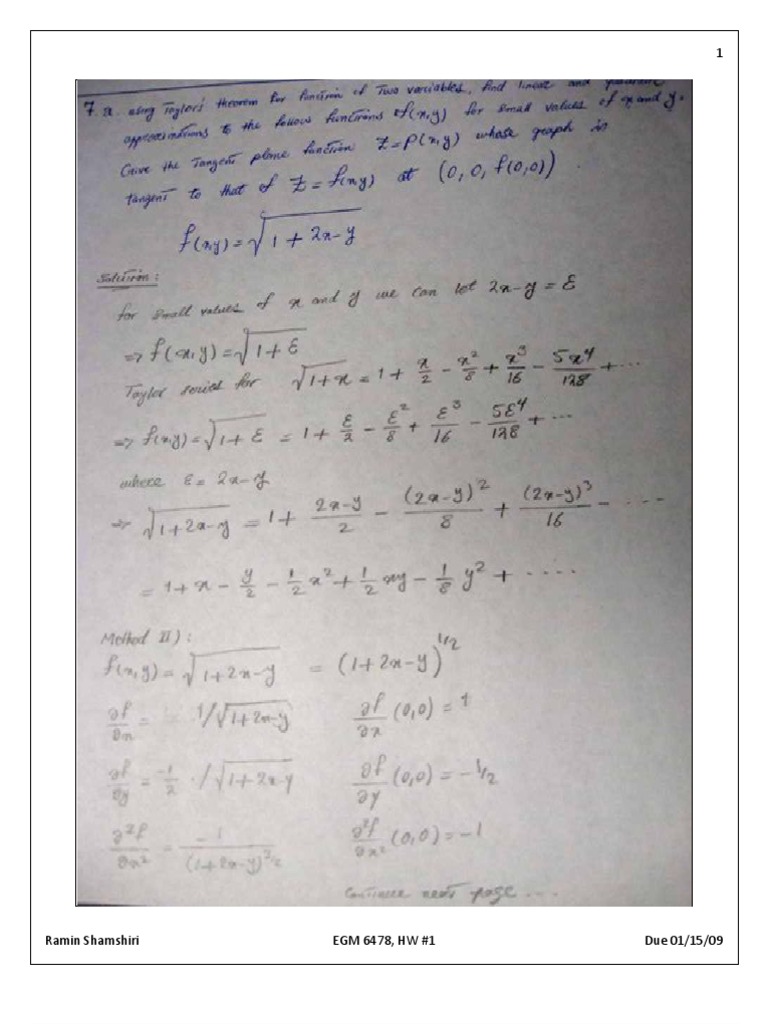 1
7.a. using Taylor's theorem for function of Two variables, find linear and quadratic
approximations to the follows functions of f(x,y) for small values of x and y.
Give the Tangent plane function Z=P(x,y) whose graph is
tangent to that of Z=f(x,y) at (0,0,f(0,0)).
f(x,y)=√(1+2x-y)
Solution:
for small values of x and y we can let 2x-y=ε
⇒ f(x,y)=√(1+ε)
Taylor series for √(1+x) = 1 + x/2 - x²/8 + x³/16 - 5x⁴/128 + ...
⇒ f(x,y)=√(1+ε) = 1 + ε/2 - ε²/8 + ε³/16 - 5ε⁴/128 + ...
where ε=2x-y
⇒ √(1+2x-y) = 1 + (2x-y)/2 - (2x-y)²/8 + (2x-y)³/16 - ....
= 1+x - y/2 - 1/2 x² + 1/2 xy - 1/8 y² + ....
Method II):
f(x,y)=√(1+2x-y) = (1+2x-y)^1/2
∂f/∂x = 1/√(1+2x-y) ∂f/∂x (0,0)=1
∂f/∂y = -1/2 ./√(1+2x-y) ∂f/∂y (0,0)=-1/2
∂²f/∂x² = -1/(1+2x-y)^3/2 ∂²f/∂x² (0,0)=-1
Continue next page ...
Ramin Shamshiri EGM 6478, HW #1 Due 01/15/09